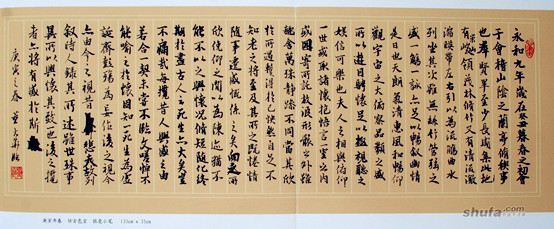 永和九年歲在癸丑暮春之初會
于會稽山陰之蘭亭脩稧事
也群賢畢至少長咸集此地
有峻領茂林脩竹又有清流激
湍暎帶左右引以為流觴曲水
列坐其次雖無絲竹管弦之
盛一觴一詠亦足以暢敘幽情
是日也天朗氣清惠風和暢仰
觀宇宙之大俯察品類之盛
所以遊目騁懷足以極視聽之
娛信可樂也夫人之相與俯仰
一世或取諸懷抱悟言一室之內
或因寄所託放浪形骸之外雖
趣舍萬殊靜躁不同當其欣
於所遇暫得於己快然自足不
知老之將至及其所之既惓情
隨事遷感慨係之矣向之所
欣俛仰之間以為陳迹猶不
能不以之興懷況脩短隨化終
期於盡古人云死生亦大矣豈
不痛哉每攬昔人興感之由
若合一契未嘗不臨文嗟悼不
能喻之於懷固知一死生為虛
誕齊彭殤為妄作後之視今
亦由今之視昔悲夫故列
敘時人錄其所述雖世殊事
異所以興懷其致一也後之攬
者亦將有感於斯
庚寅之春
庚寅年春 仿古色宣 狼毫小笔 133cm x 35cm
shufa.com